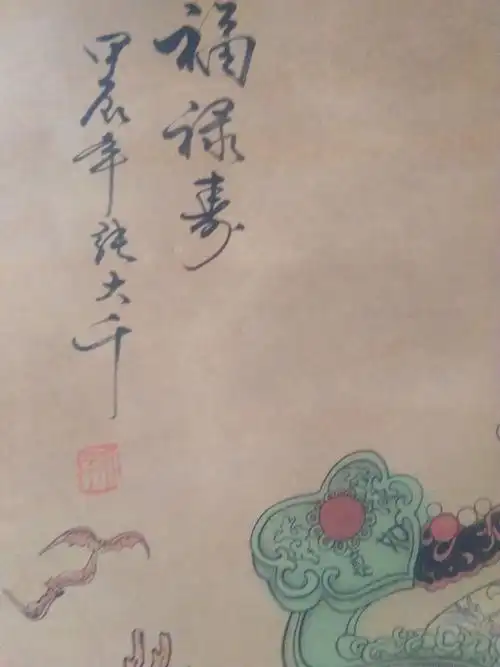 福禄寿
甲辰年張大千